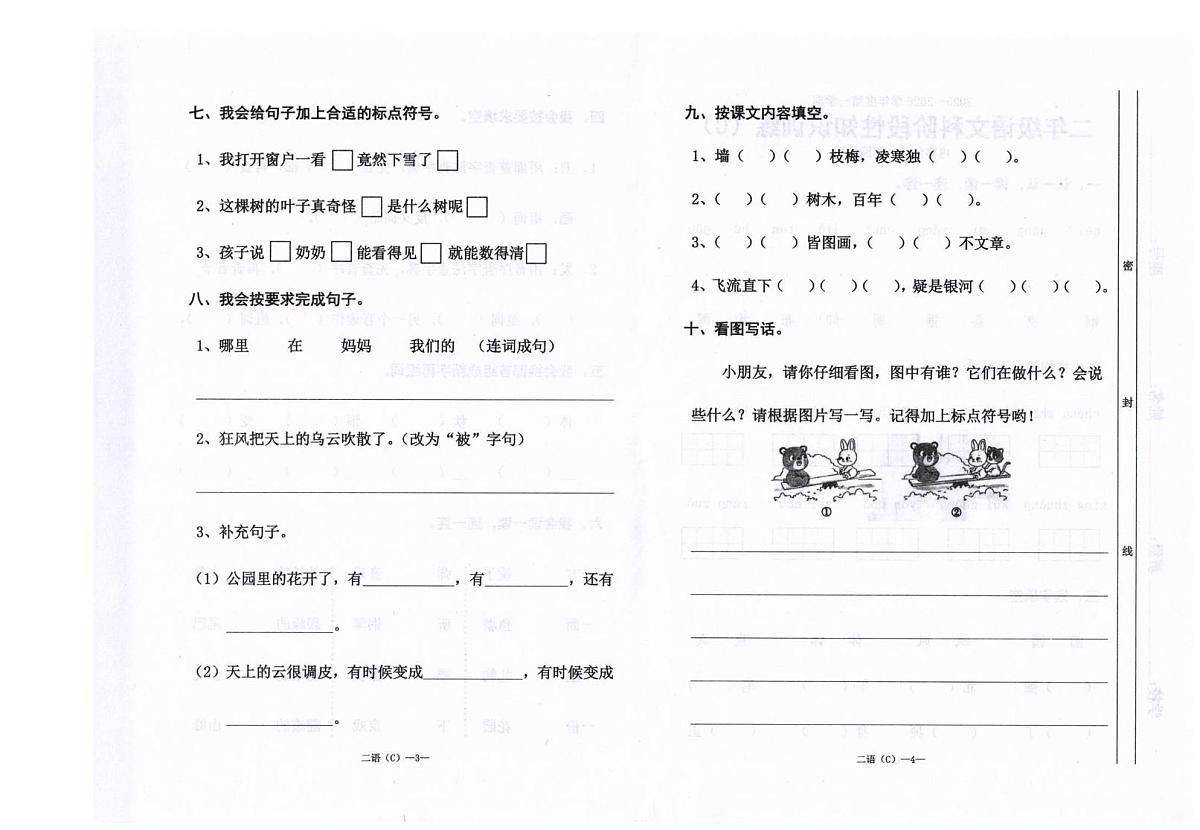 七、我会给句子加上合适的标点符号。
1、我打开窗户一看□竟然下雪了□
2、这棵树的叶子真奇怪□是什么树呢□
3、孩子说□奶奶□能看得见□就能数得清□
八、我会按要求完成句子。
1、哪里 在 妈妈 我们的 （连词成句）
2、狂风把天上的乌云吹散了。（改为“被”字句）
3、补充句子。
（1）公园里的花开了，有___________，有__________，还有
_____________。
（2）天上的云很调皮，有时候变成____________，有时候变成
_____________。
二语（C）—3—
九、按课文内容填空。
1、墙（ ）（ ）枝梅，凌寒独（ ）（ ）。
2、（ ）（ ）树木，百年（ ）（ ）。
3、（ ）（ ）皆图画，（ ）（ ）不文章。
4、飞流直下（ ）（ ）（ ），疑是银河（ ）（ ）（ ）。
十、看图写话。
小朋友，请你仔细看图，图中有谁？它们在做什么？会说
些什么？请根据图片写一写。记得加上标点符号哟！
① ②
二语（C）—4—
密
封
线